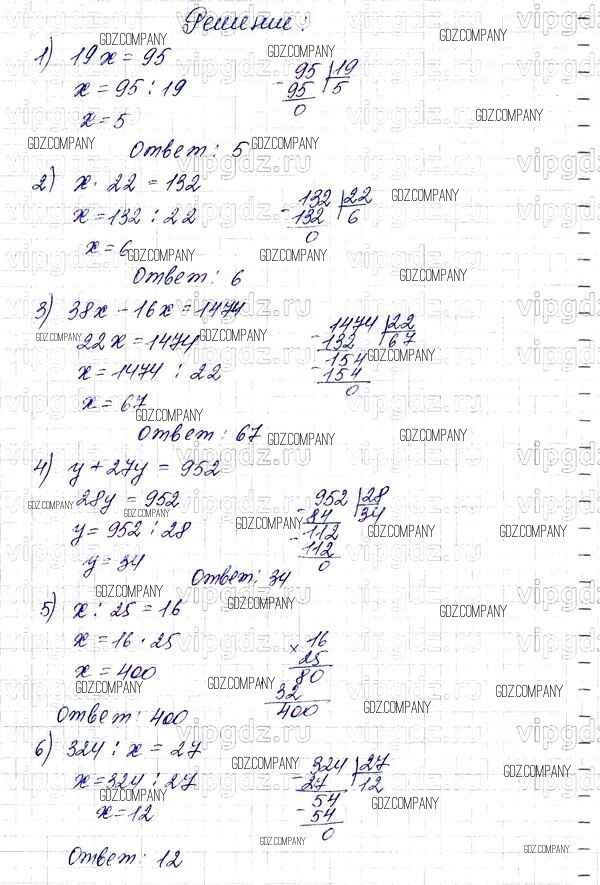 Решение:
1) 19x = 95
x = 95 : 19
x = 5
95 | 19
- 95 5
0
Ответ: 5
2) x · 22 = 132
x = 132 : 22
x = 6
132 | 22
- 132 6
0
Ответ: 6
3) 38x - 16x = 1474
22x = 1474
x = 1474 : 22
x = 67
1474 | 22
- 132 67
154
- 154
0
Ответ: 67
4) y + 27y = 952
28y = 952
y = 952 : 28
y = 34
952 | 28
- 84 34
112
- 112
0
Ответ: 34
5) x : 25 = 16
x = 16 · 25
x = 400
16
× 25
80
32
400
Ответ: 400
6) 324 : x = 27
x = 324 : 27
x = 12
324 | 27
- 27 12
54
- 54
0
Ответ: 12
GDZ.COMPANY
vipgdz.ru